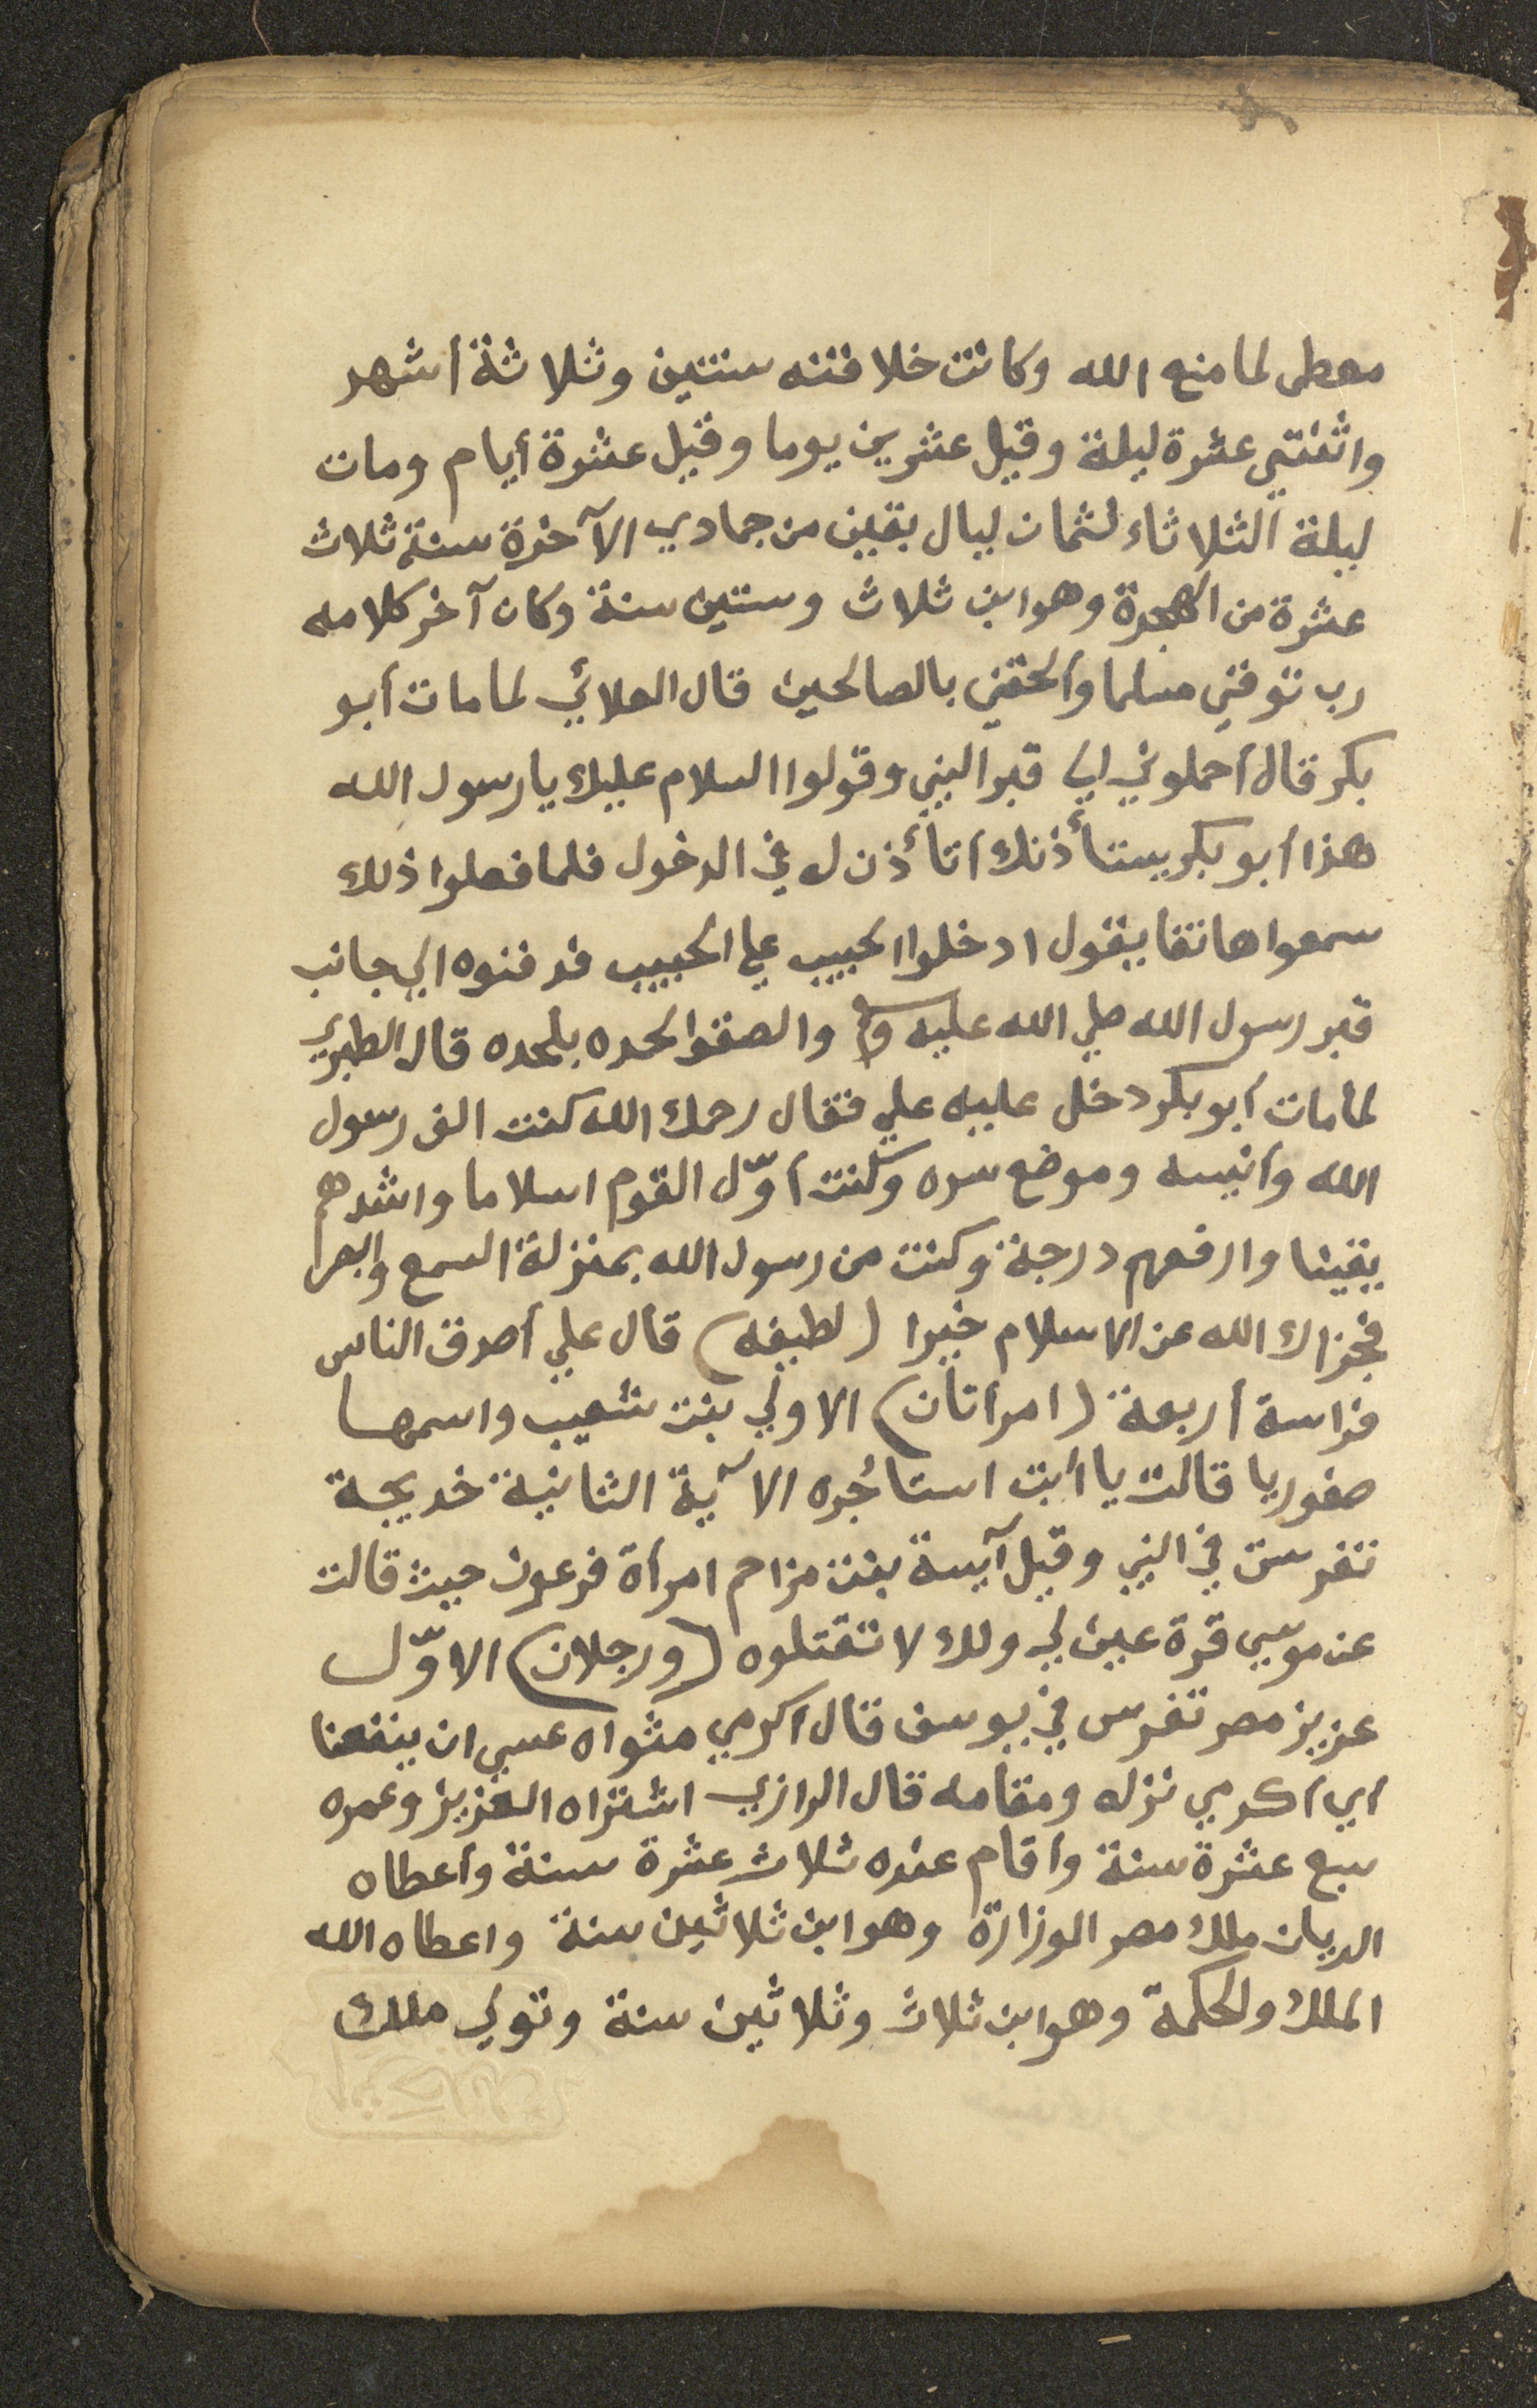 معطى لما منع الله وكانت خلافته سنتين وثلاثة أشهر
واثنتي عشرة ليلة وقيل عشرين يوما وقيل عشرة أيام ومات
ليلة الثلاثاء لثمان ليال بقين من جمادي الآخرة سنة ثلاث
عشرة من الهجرة وهو ابن ثلاث وستين سنة وكان آخر كلامه
رب توفني مسلما وألحقني بالصالحين قال العلائي لما مات أبو
بكر قال احملوني الي قبر النبي وقولوا السلام عليك يا رسول الله
هذا أبو بكر يستأذنك أتأذن له في الدخول فلما فعلوا ذلك
سمعوا هاتفا يقول ادخلوا الحبيب علي الحبيب فدفنوه الي جانب
قبر رسول الله صلي الله عليه و والصقوا لحده بلحده قال الطبري
لما مات أبو بكر دخل عليه علي فقال رحمك الله كنت الف رسول
الله وأنيسه وموضع سره وكنت أوّل القوم اسلاما واشدهم
يقينا وارفعهم درجة وكنت من رسول الله بمنزلة السمع والبصر
فجزاك الله عن الاسلام خيرا (لطيفه) قال علي أصدق الناس
فراسة أربعة (امرأتان) الاولي بنت شعيب واسمها
صفوريا قالت يا أبت استأجره الآية الثانية خديجة
تفرست في النبي وقيل آسية بنت مزاحم امرأة فرعون حيث قالت
عن موسي قرة عين لي ولك لا تقتلوه (ورجلان) الاوّل
عزيز مصر تفرس في يوسف قال أكرمي مثواه عسي ان ينفعنا
اي أكرمي نزله ومقامه قال الرازي اشتراه العزيز وعمره
سبع عشرة سنة وأقام عنده ثلاث عشرة سنة وأعطاه
الريان ملك مصر الوزارة وهو ابن ثلاثين سنة واعطاه الله
الملك والحكمة وهو ابن ثلاث وثلاثين سنة وتولي ملك